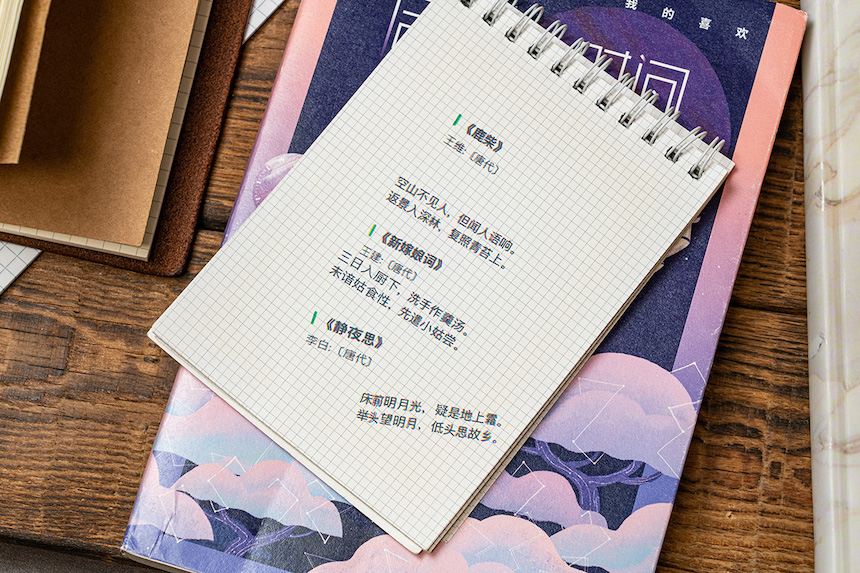 我的喜欢
时间
《鹿柴》
王维:〔唐代〕
空山不见人，但闻人语响。
返景入深林，复照青苔上。
《新嫁娘词》
王建:〔唐代〕
三日入厨下，洗手作羹汤。
未谙姑食性，先遣小姑尝。
《静夜思》
李白:〔唐代〕
床前明月光，疑是地上霜。
举头望明月，低头思故乡。